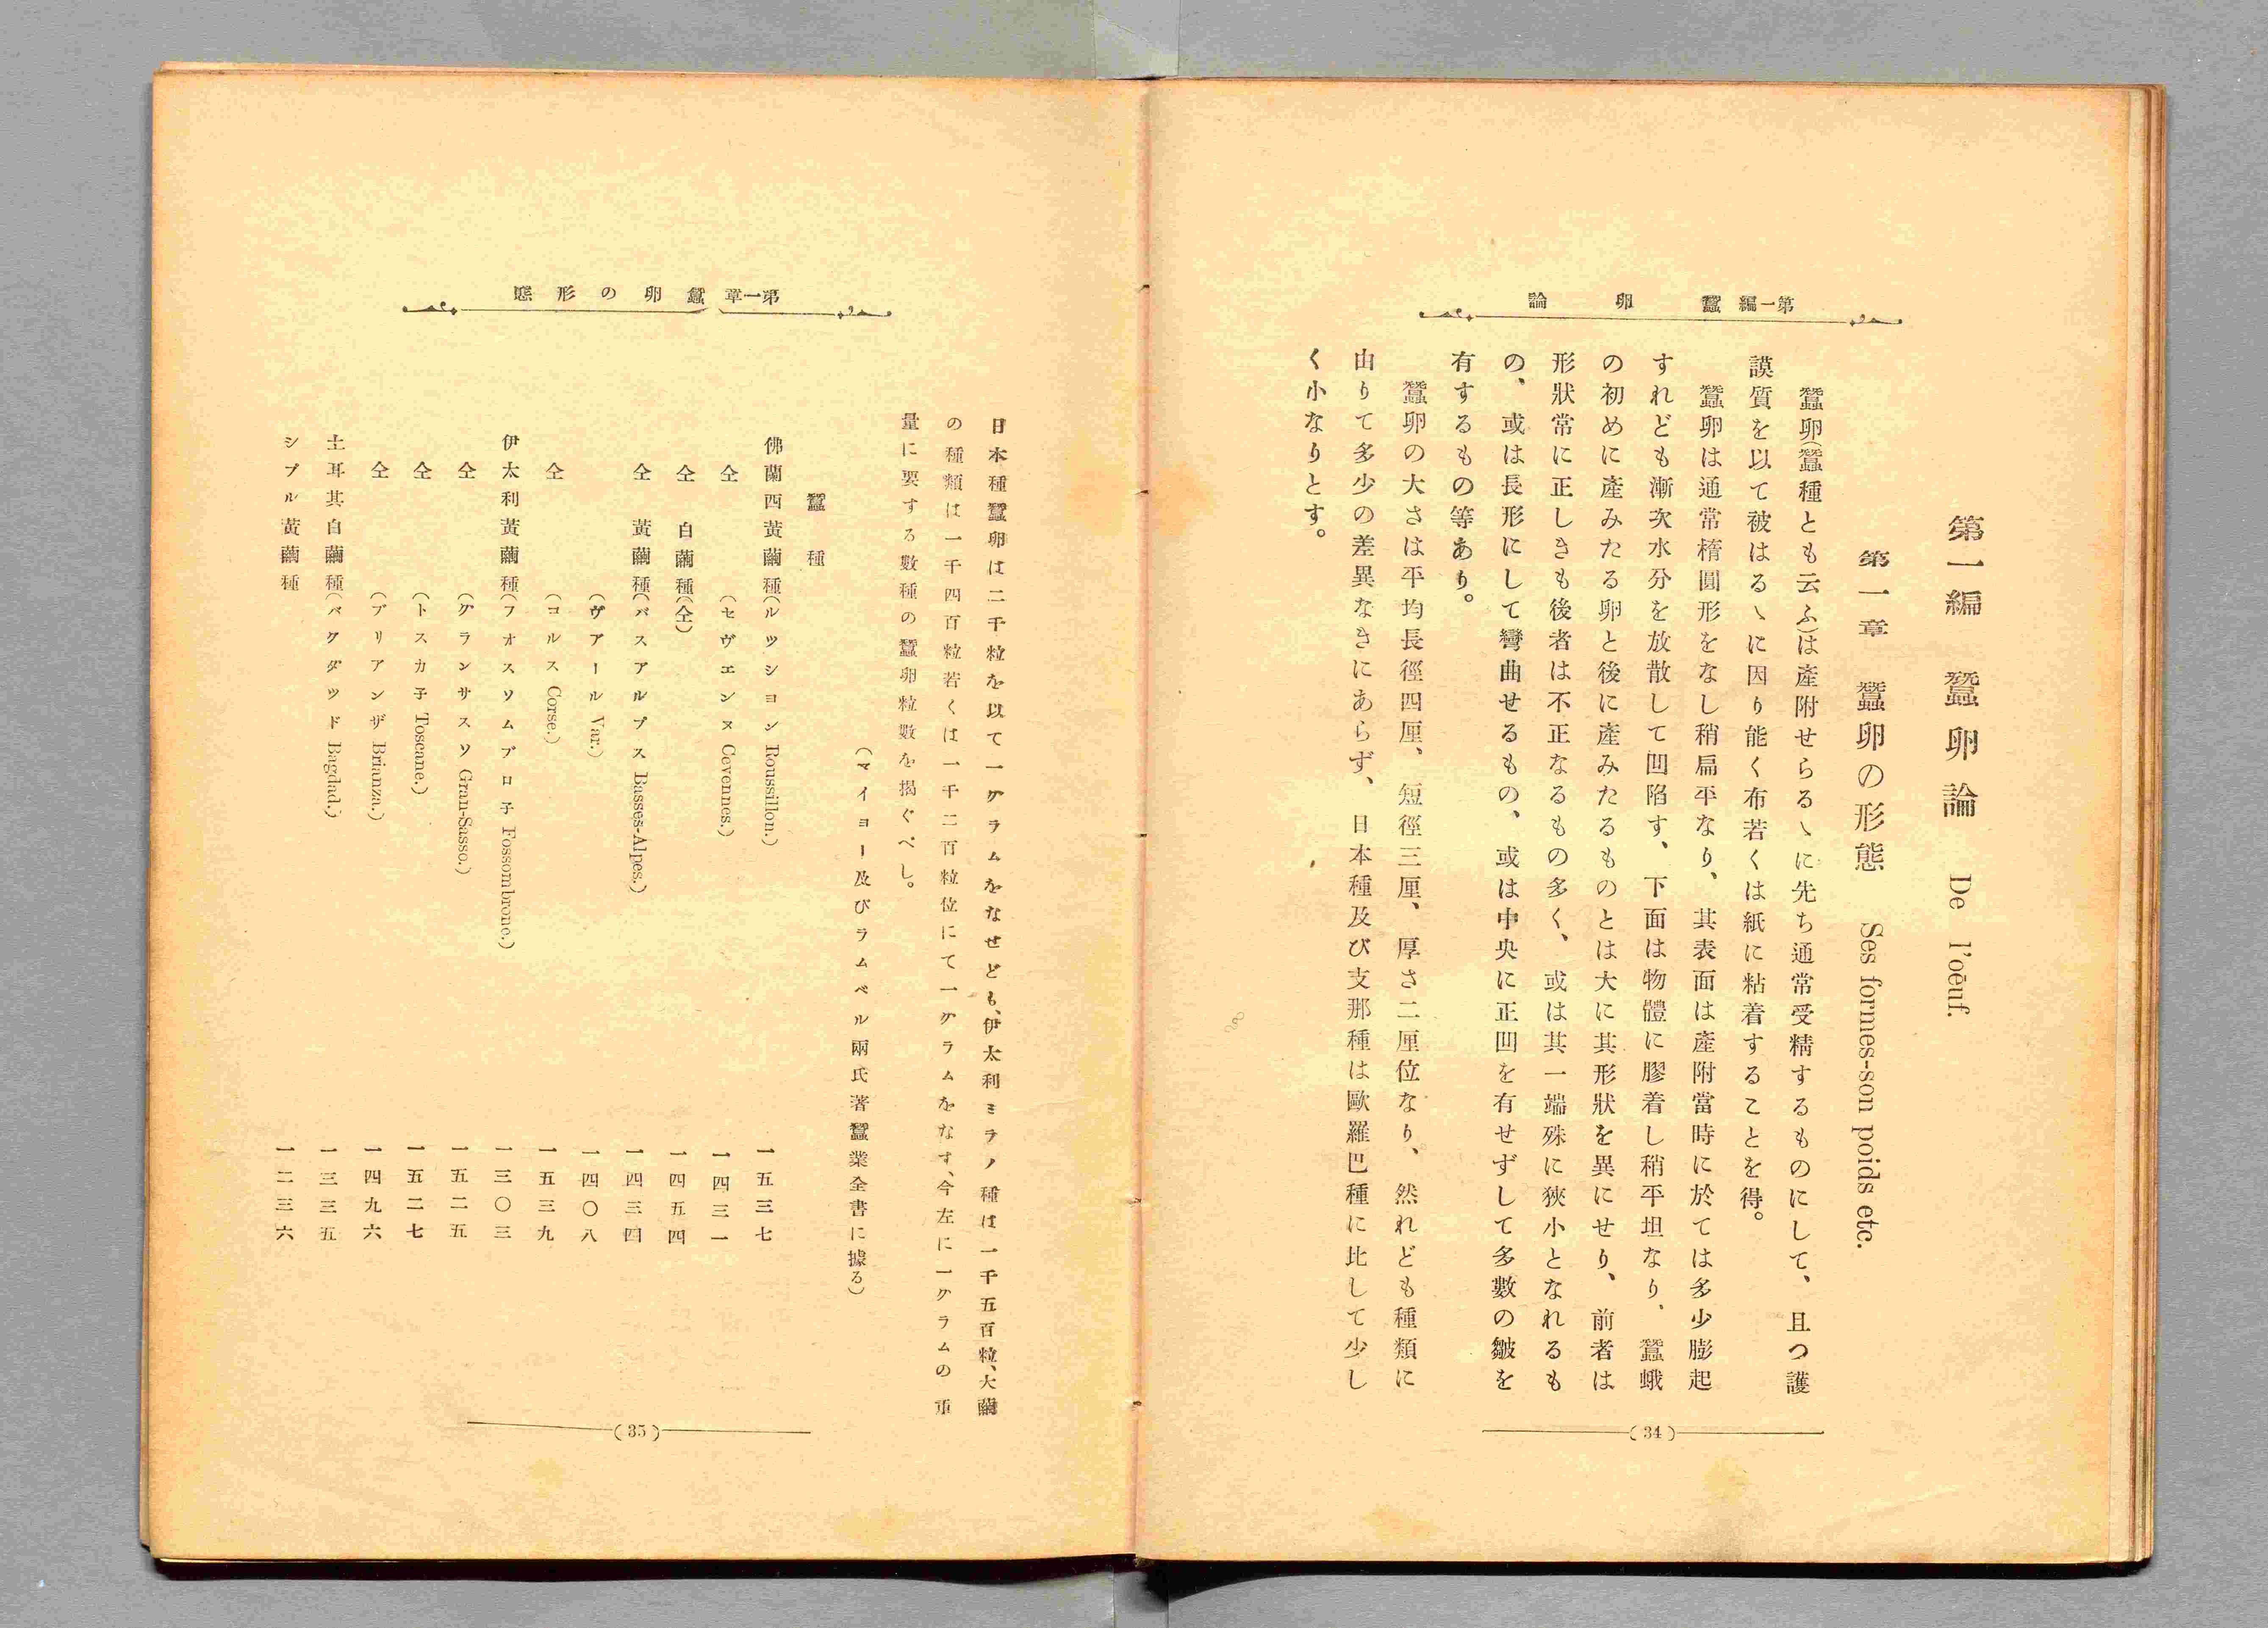 第一編　蠶卵論
第一編　蠶卵論　De l'oēuf.
第一章　蠶卵の形態　Ses formes-son poids etc.
蠶卵(蠶種とも云ふ)は產附せらるヽに先ち通常受精するものにして、且つ護
謨質を以て被はるヽに因り能く布若くは紙に粘着することを得。
蠶卵は通常橢圓形をなし稍扁平なり、其表面は產附當時に於ては多少膨起
すれども漸次水分を放散して凹陷す、下面は物體に膠着し稍平坦なり、蠶蛾
の初めに產みたる卵と後に產みたるものとは大に其形狀を異にせり、前者は
形狀常に正しきも後者は不正なるもの多く、或は其一端殊に狹小となれるも
の、或は長形にして彎曲せるもの、或は中央に正凹を有せずして多數の皺を
有するもの等あり。
蠶卵の大さは平均長徑四厘、短徑三厘、厚さ二厘位なり、然れども種類に
由りて多少の差異なきにあらず、日本種及び支那種は歐羅巴種に比して少し
く小なりとす。
(34)
第一章　蠶卵の形態
日本種蠶卵は二千粒を以て一グラムをなせども、伊太利ミラノ種は一千五百粒、大繭
の種類は一千四百粒若くは一千二百粒位にて一グラムをなす、今左に一グラムの重
量に要する數種の蠶卵粒數を揭ぐべし。
(マイヨー及びラムベル兩氏著蠶業全書に據る)
蠶種
佛蘭西黃繭種(ルツシヨン Roussillon.)　一五三七
仝　(セヴエンヌ Cevennes.)　一四三一
仝　白繭種(仝)　一四五四
仝　黃繭種(バスアルプス Basses-Alpes.)　一四三四
(ヴアール Var.)　一四〇八
仝　(コルス Corse.)　一五三九
伊太利黃繭種(フオスソムブロ子 Fossombrone.)　一三〇三
仝　(グランサスソ Gran-Sasso.)　一五二五
仝　(トスカ子 Toscane.)　一五二七
仝　(ブリアンザ Brianza.)　一四九六
土耳其白繭種(バグダツド Bagdad.)　一三三五
シプル黃繭種　一二三六
(35)